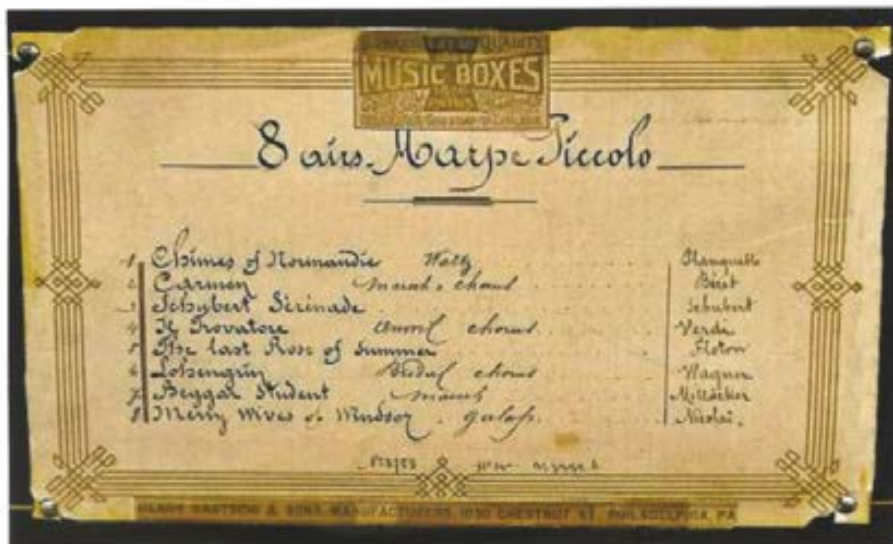 QUALITY
MUSIC BOXES
8 airs. Harpe Piccolo
1 Chimes of Normandie Waltz Planquette
2 Carmen March & chorus Bizet
3 Schubert Sérénade Schubert
4 Il Trovatore Anvil chorus Verdi
5 The last Rose of Summer Flotow
6 Lohengrin Bridal chorus Wagner
7 Beggar Student March Millöcker
8 Merry Wives of Windsor. galop. Nicolaï.
& SONS, MANUFACTURERS, 1030 CHESTNUT ST. PHILADELPHIA, PA